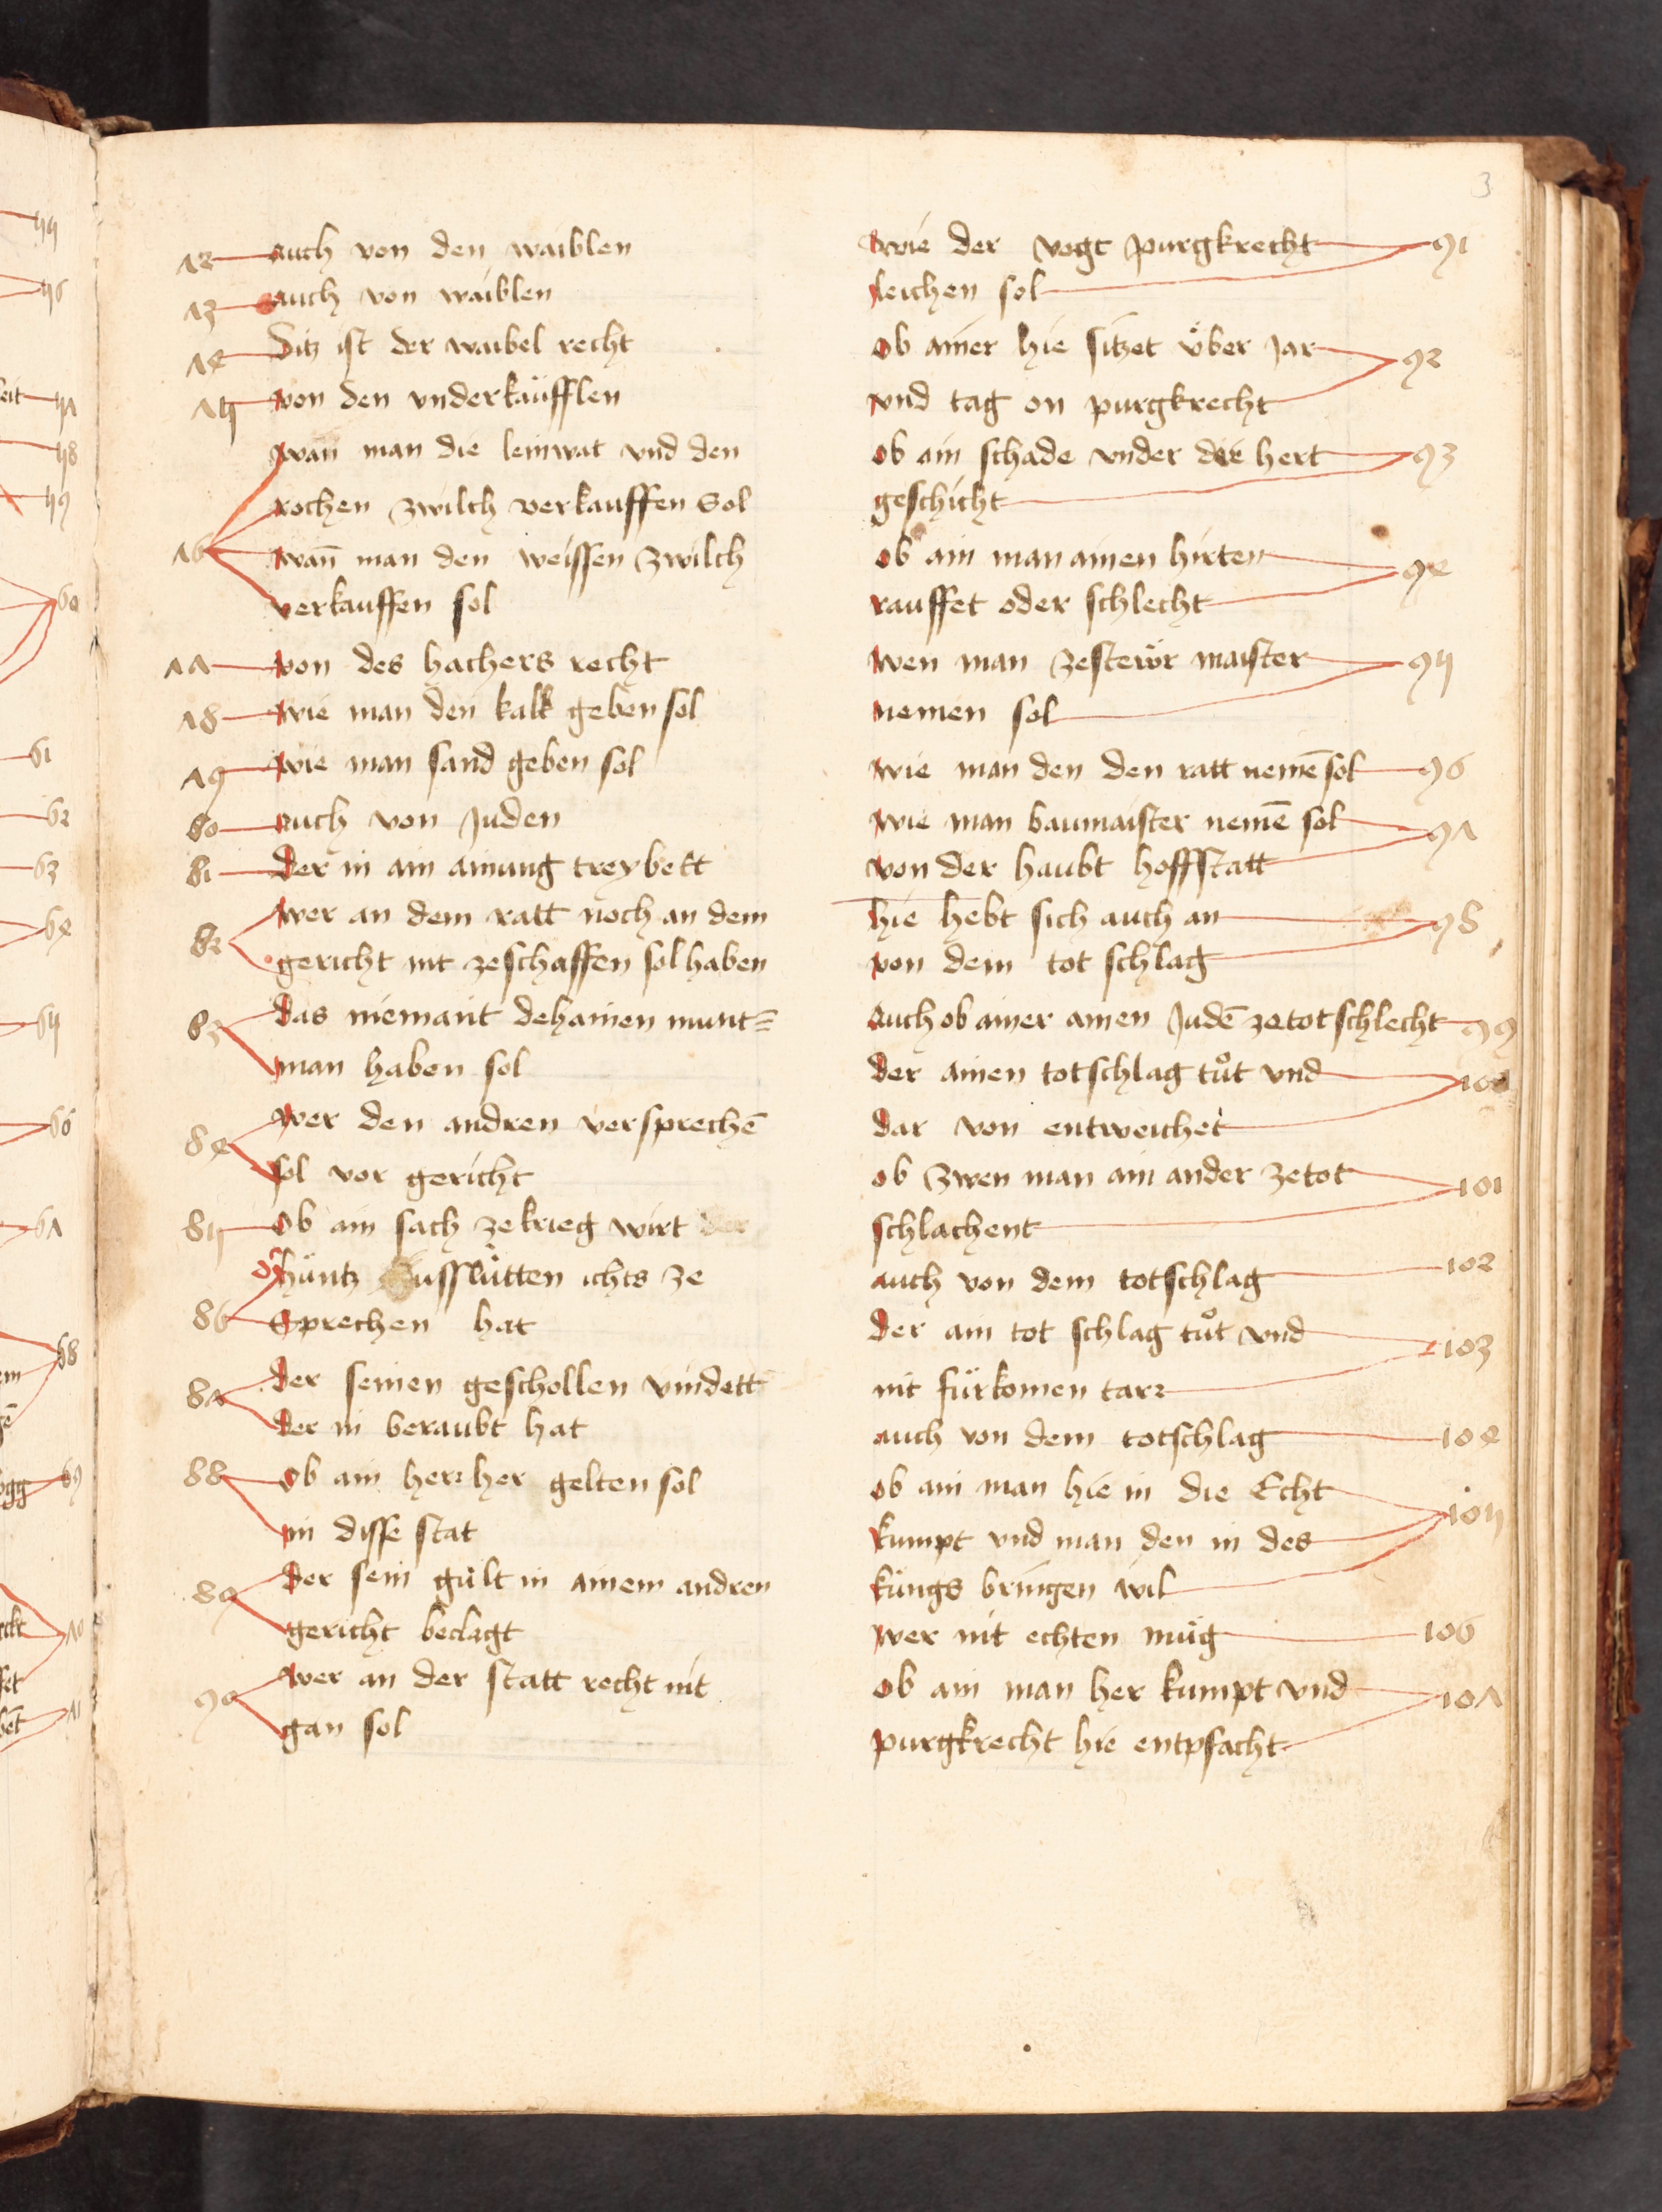 3
72 auch von den waiblen
73 auch von waiblen
74 Ditz ist der waibel recht
75 von den vnderkäufflen
wan̄ man die leinwat vnd den
rochen zwilch verkauffen Sol
76 wan̄ man den weissen zwilch
verkauffen sol
77 von des hachers recht
78 wie man den kalk geben sol
79 wie man sand geben sol
80 auch von Juden
81 der in ain ainung treybett
82 wer an dem ratt noch an dem
gericht nit zeschaffen sol haben
83 das niemant dehainen munt=
man haben sol
84 wer den andren versprechē
sol vor gericht
85 Ob ain sach ze krieg wirt der
hüntz ausslütten ichts ze
86 Sprechen hat
87 der seinen geschollen vindett
der in beraubt hat
88 Ob ain herr her gelten sol
in disse stat
89 der sein gült in ainem andren
gericht beclagt
90 wer an der statt recht nit
gan sol
wie der vogt purgkrecht 91
leichen sol
ob ainer hie sitzet über Jar 92
vnd tag on purgkrecht
ob ain schade vnder der hert 93
geschicht
ob ain man ainen hirten 94
rauffet oder schlecht
wen man zesteẅr maister 95
nemen sol
wie man den den ratt nemē sol 96
wie man baumaister nemē sol 97
von der haubt hoffstatt
hie hebt sich auch an 98
von dem tot schlag
auch ob ainer ainen Judē ze tot schlecht 99
der ainen totschlag tůt vnd 100
dar von entweichet
ob zwen man ain ander ze tot 101
schlachent
auch von dem totschlag 102
der ain tot schlag tůt vnd 103
nit fürkomen tarr
auch von dem totschlag 104
ob ain man hie in die Echt 105
kumpt vnd man den in des
küngs bringen wil
wer nit echten müg 106
ob ain man her kumpt vnd 107
purgkrecht hie entpfacht